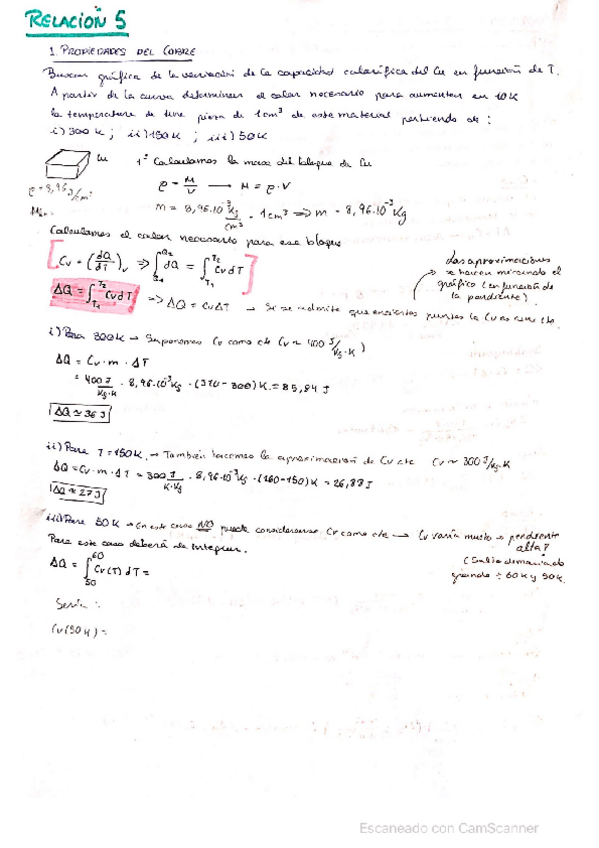 RELACIÓN 5
1. PROPIEDADES DEL COBRE
Buscar gráfica de la variación de la capacidad calorífica del Cu en función de T.
A partir de la curva determinen el calor necesario para aumentar en 10K
la temperatura de una pieza de 1cm³ de este material partiendo de:
i) 300K ; ii) 150K ; iii) 50K
Cu
1º Calculamos la masa del bloque de Cu
ρ = M/V → M = ρ·V
ρ=8,96 g/cm³
M = 8,96·10⁻³ Kg/cm³ · 1cm³ ⇒ m = 8,96·10⁻³ Kg
Calculamos el calor necesario para ese bloque
Cv = (dQ/dT)v ⇒ ∫Q1Q2 dQ = ∫T1T2 Cv dT
Las aproximaciones
se hacen mirando el
gráfico (en función de
la pendiente).
ΔQ = ∫T1T2 Cv dT => ΔQ = CvΔT → Si se admite que en ciertos puntos la Cv es cte.
i) Para 300K → Suponemos Cv como cte Cv ≈ 400 J/Kg·K)
ΔQ = Cv · m · ΔT
= 400 J/Kg·K · 8,96·10⁻³Kg · (310-300)K = 85,84 J
ΔQ ≃ 36 J
ii) Para T=150K → También hacemos la aproximación de Cv cte Cv ≈ 300 J/Kg·K
ΔQ = Cv · m · ΔT = 300 J/K·Kg · 8,96·10⁻³Kg · (160-150)K = 26,88 J
ΔQ ≈ 27 J
iii) Para 50K → En este caso NO puede considerarse Cv como cte → Cv varía mucho → pendiente
alta?
Para este caso deberá de integrar.
(Salto demasiado
grande ÷ 60K y 50K.
ΔQ = ∫5060 Cv(T) dT =
Sería :
Cv(50K) =
Escaneado con CamScanner